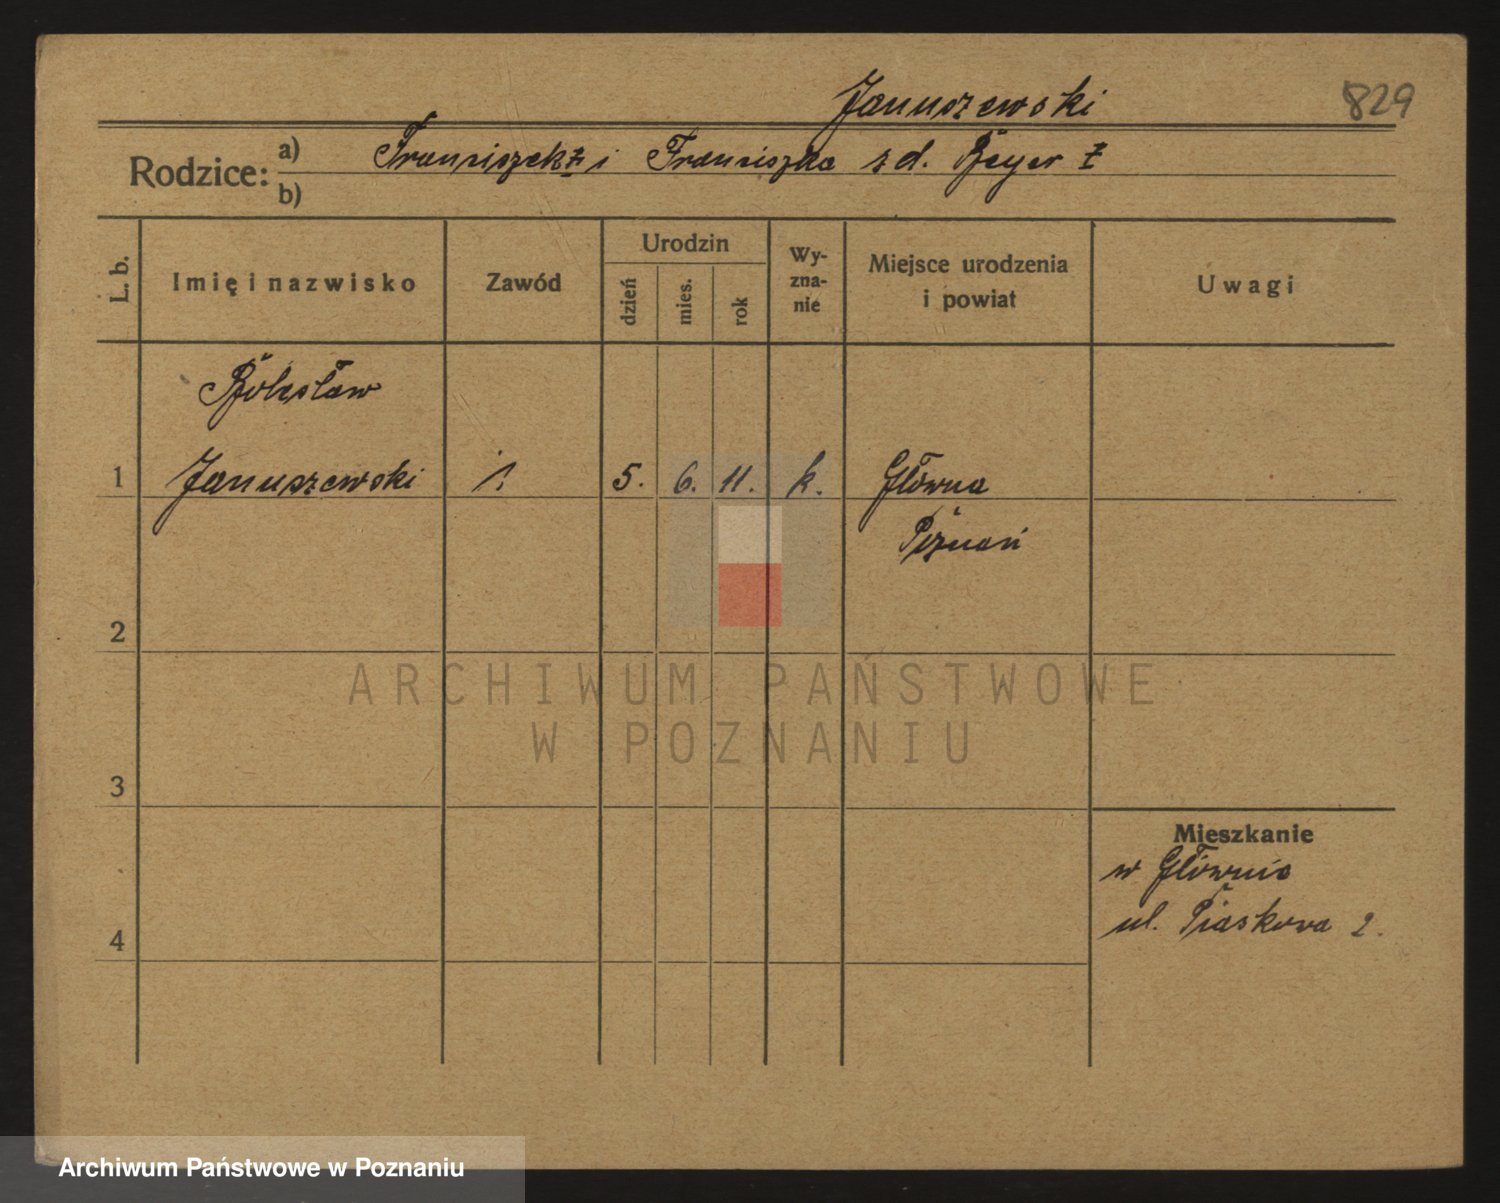 Januszewski
829
Rodzice: a) Franciszek ż i Franciszka z d. Beyer ż
b)
L. b.
Imię i nazwisko
Zawód
Urodzin
dzień
mies.
rok
Wy-
zna-
nie
Miejsce urodzenia
i powiat
Uwagi
Bolesław
1 Januszewski 5. 6. 11. k. Główna
Poznań
2
3
4
Mieszkanie
w Głównie
ul. Piaskowa 2.
ARCHIWUM PAŃSTWOWE
W POZNANIU
Archiwum Państwowe w Poznaniu